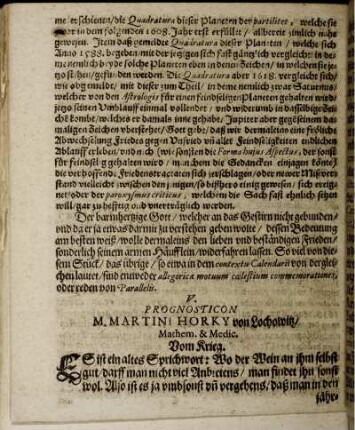 me erschienen/die Quadratura dieser Planeten der partilitet, welche sie
vor in dem folgenden 1608. Jahr erst erfüllet / allbereit zimlich nahe
gewesen. Item daß gemeldte Quadratura dieser Planeten / welche sich
Anno 1588. begeben mit der jetzigen sich fast gäntzlich vergleicht: in de-
me nemlich beyde solche Planeten eben in denen Zeichen / in welchen sie je-
tzo stehen / gefunden werden. Die Quadratura aber 1618. vergleicht sich/
wie obgemeldt / mit dieser zum Theil / in deme nemlich zwar Saturnus/
welcher von den Astrologis für einen feindseligen Planeten gehalten wird/
jetzo seinen Umblauff einmal vollendet / und widerumb in dasselbige Zei-
chen kombt / welches er damals inne gehabt / Jupiter aber gegen seinem da-
maligen Zeichen übersteht / Gott gebe / daß wir dermaleins eine fröliche
Abwechslung Friedens gegen Unfried und aller Feindseligkeiten endlichen
Ablauff erleben / und ich (weil sonsten die Forma hujus Aspectus, der sonst
für feindselig gehalten wird / manchem die Gedancken einjagen könte)
die verhoffende Friedenstractaten sich zerschlagen / oder newer Mißver-
stand vielleicht zwischen den jenigen / so bißhero einig gewesen / sich ereig-
net / oder der paroxysmus criticus, welchem die Sach fast ähnlich sehen
will / gar zu hefftig und unerträglich werden.
Der barmhertzige Gott / welcher an das Gestirn nicht gebunden/
und da er ja etwas darmit zu verstehen geben wolte / dessen Bedeutung
am besten weiß / wolle dermaleins den lieben und beständigen Frieden/
sonderlich seinem armen Häufflein / widerfahren lassen. So viel von die-
sem Stück / das übrige / so etwa in dem contextu Calendarii von derglei-
chen lautet / sind entweder allegorica motuum cælestium commemorationes,
oder reden von Parallelis.
V.
PROGNOSTICON
M. MARTINI HORKY von Lochowitz/
Mathem. & Medic.
Vom Krieg.
ES ist ein altes Sprichwort: Wo der Wein an ihm selbst
gut / darff man nicht viel Anbietens / man findet ihn sonst
wol. Also ist es ja umbsonst und vergebens / daß man in den
jähr-